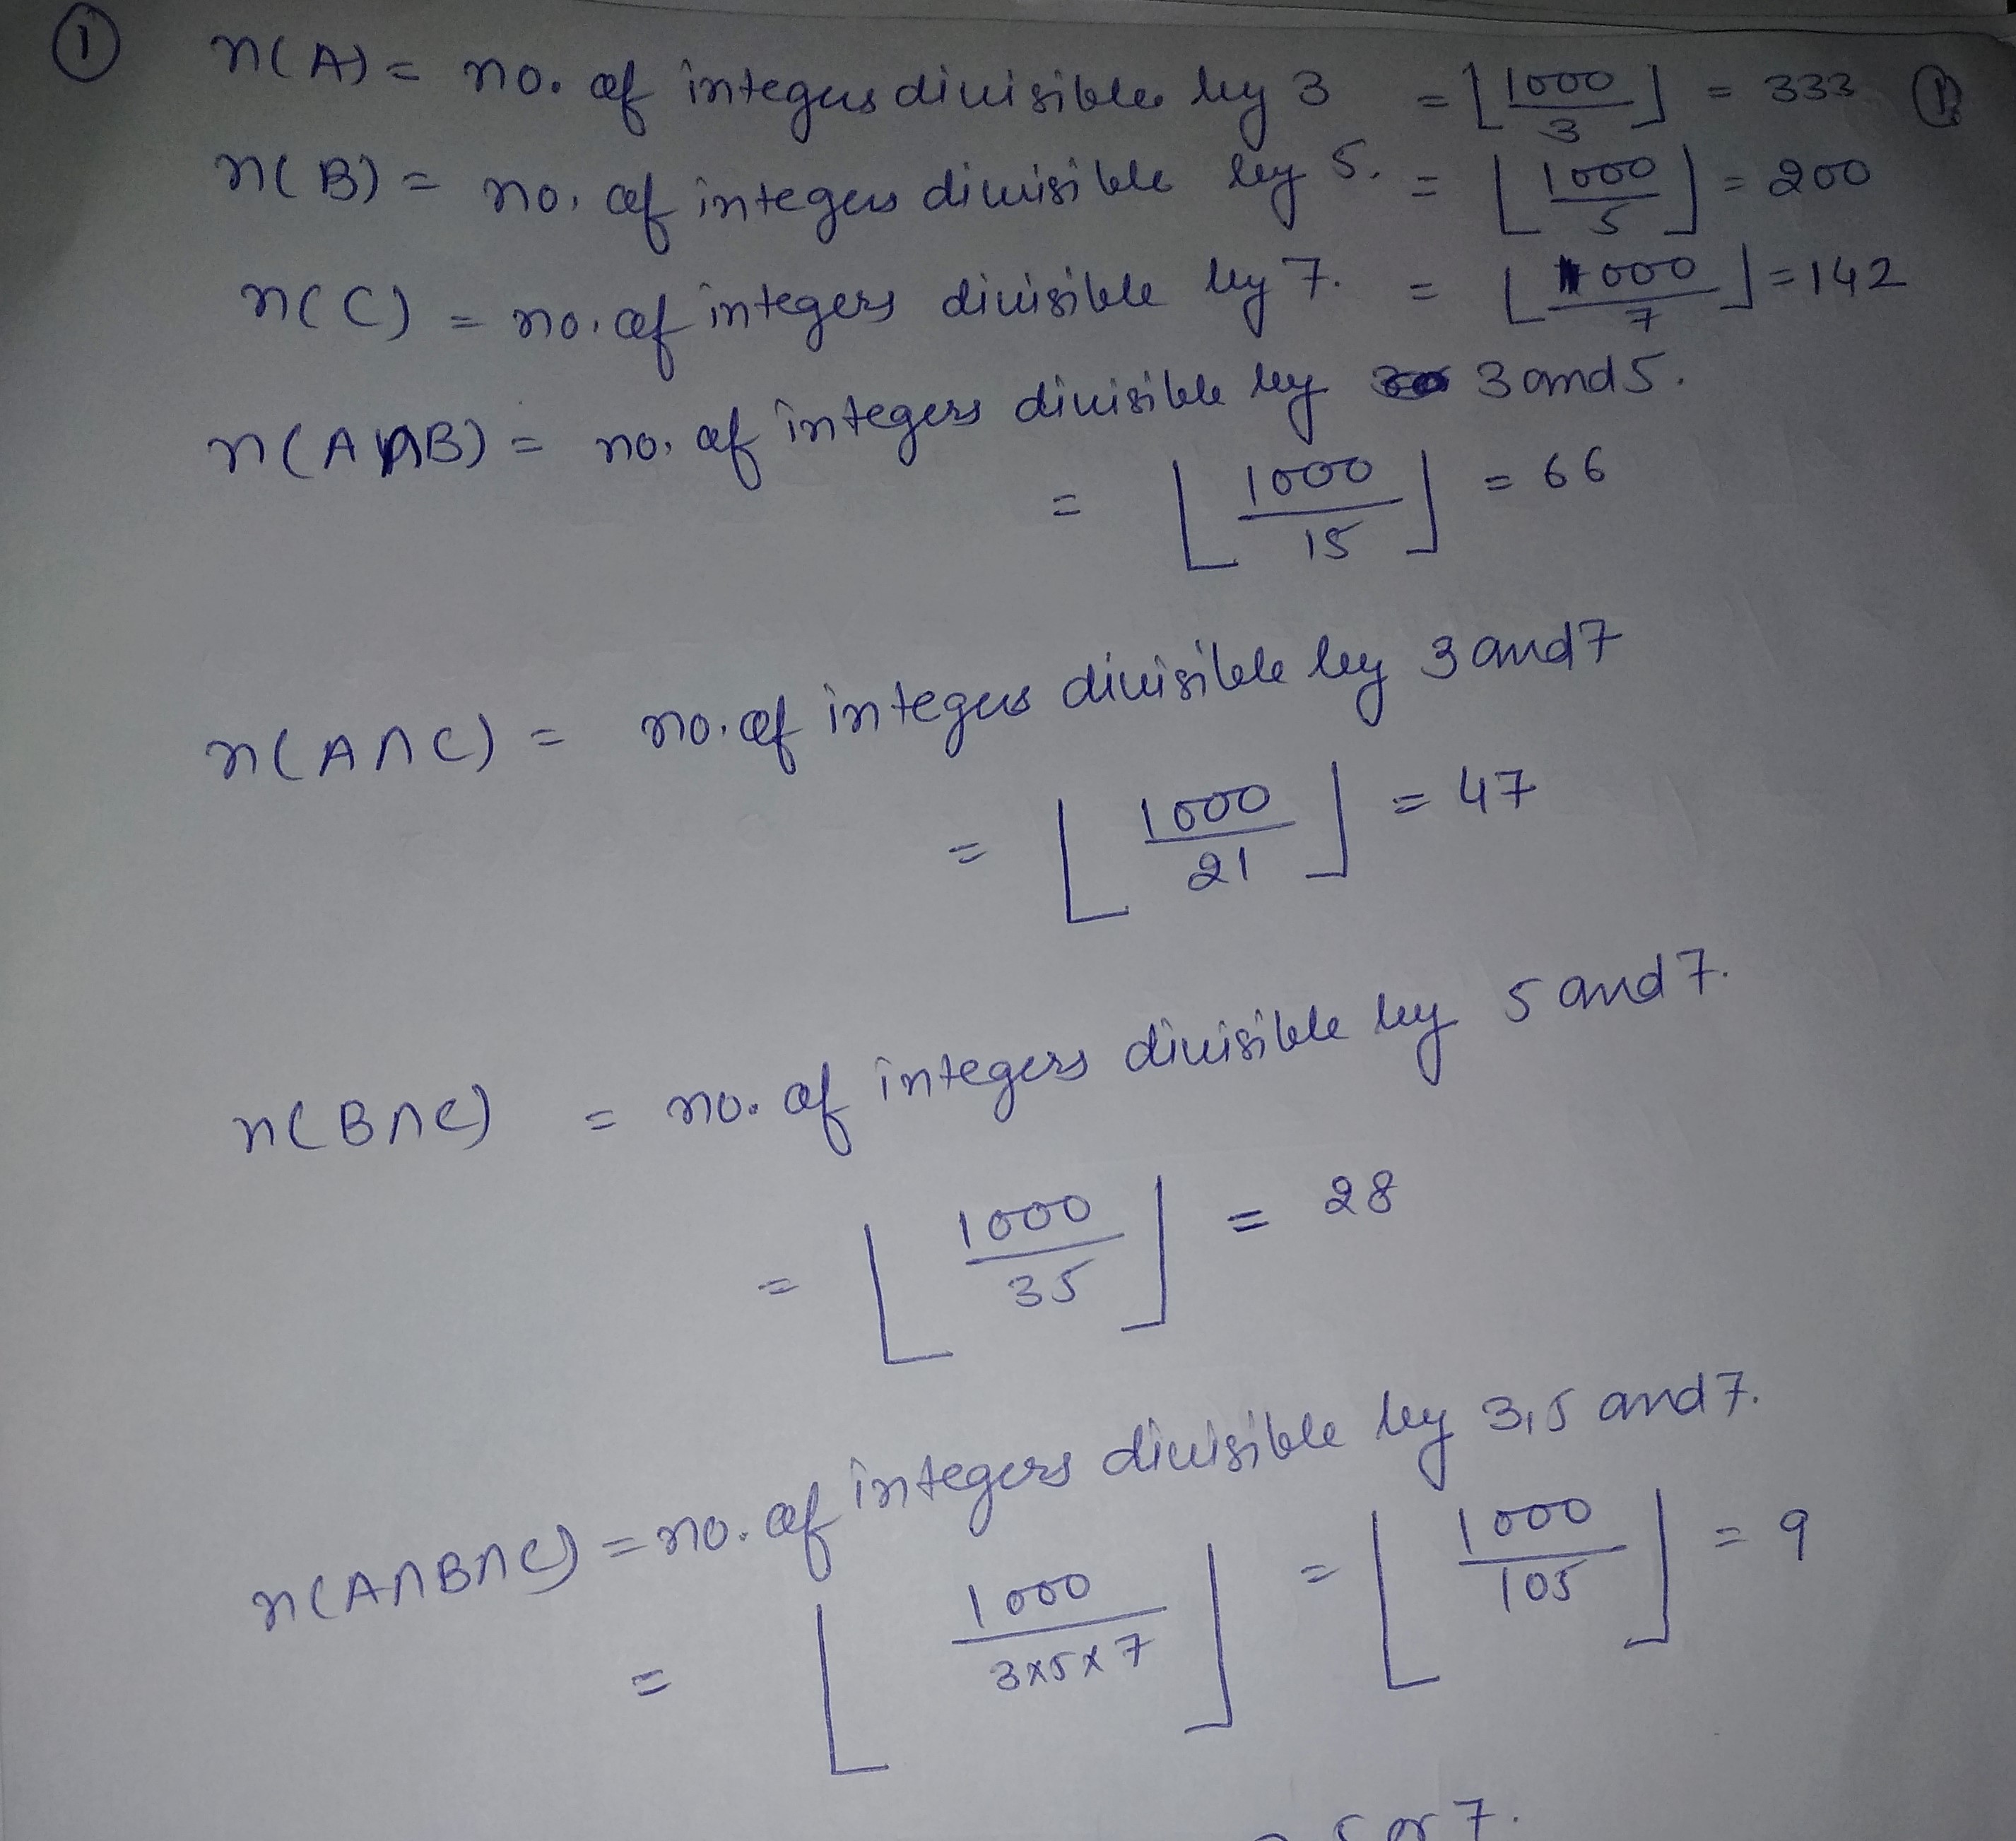 ① n(A) = no. of integers divisible by 3 = ⌊1000/3⌋ = 333
n(B) = no. of integers divisible by 5. = ⌊1000/5⌋ = 200
n(C) = no. of integers divisible by 7. = ⌊1000/7⌋ = 142
n(A∩B) = no. of integers divisible by 3 and 5.
= ⌊1000/15⌋ = 66
n(A∩C) = no. of integers divisible by 3 and 7
= ⌊1000/21⌋ = 47
n(B∩C) = no. of integers divisible by 5 and 7.
= ⌊1000/35⌋ = 28
n(A∩B∩C) = no. of integers divisible by 3,5 and 7.
= ⌊1000/3×5×7⌋ = ⌊1000/105⌋ = 9
5 or 7.